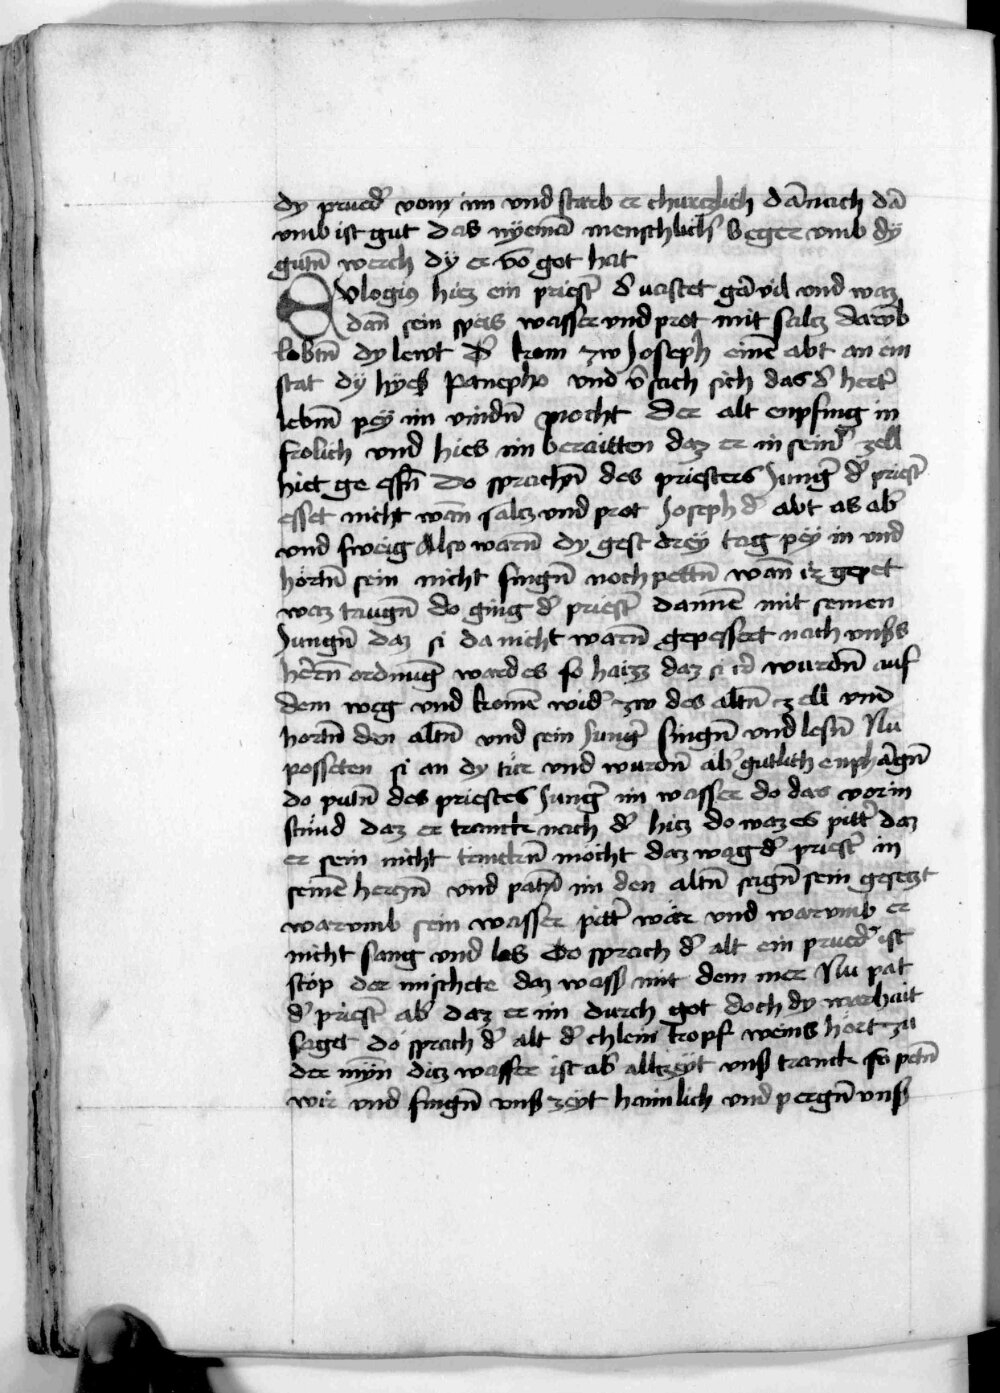 dy prued᷒ vom im vnd starb er churczlich dāˉnach dā
vmb ist gut das nyemā menschlich᷒ beger vmb dy
gutn̄ werch dy er vō got hat
Evlogius hiez ein priest᷒ d᷒ vastet gār vil vnd waz
dan̄ sein speis wasser vnd prot mit salcz darūb
lobtn̄ dy lewt D᷒ kom zw Joseph einē abt an ein
stat dy hyeß Panepho vnd v᷒sach sich das d᷒ hert᷒
lebm̄ pey im vindn̄ mocht Der alt enpfing in
frolich vnd hies im beraitten daz er in sein᷒ zell
hiet ge essn̄ Do sprachn̄ des priesters Jung᷒ d᷒ priest᷒
esset nicht wan̄ salcz vnd prot Joseph d᷒ abt as ab᷒
vnd sweig Also warn̄ dy gest drey tag pey in vnd
hortn̄ sein nicht singn̄ noch pettn̄ wan̄ ir gepet
waz taugn̄ do ging d᷒ priest᷒ dannē mit seinen
Jungn̄ daz si da nicht warn̄ gepessert nach vnsers
hern̄ ordnung᷒ ward es so haizz daz si ird wurdn̄ auf
dem weg vnd komē wid᷒ zw des altn̄ czell vnd
hortn̄ den altn̄ vnd sein Jung᷒ singn̄ vnd lesn̄ Nu
posseten si an dy tür vnd wurdn̄ ab᷒ gutlich enphāgn̄
do putn̄ des priestes Jung᷒ im wasser do das vor in
stuͤnd daz er tranck nach d᷒ hicz do waz es pitt᷒ daz
er sein nicht trinckn̄ mocht daz wag d᷒ priest᷒ in
seinē herczn̄ vnd patn̄ im den altn̄ sagn̄ sein gesetzt
warvmb sein wasser pitt᷒ wär vnd warvmb er
nicht sang vnd las Do sprach d᷒ alt ein prued᷒ ist
stop der mischete daz wass᷒ mit dem mer Nu pat
d᷒ priest᷒ ab᷒ daz er im durch got doch dy warhait
saget do sprach d᷒ alt d᷒ chlein tropf weins hört zu
der myn̄ dicz wasser ist ab᷒ allczeyt vnß tranck so petn̄
wir vnd singn̄ vnß zeyt haimlich vnd pergn̄ vnß